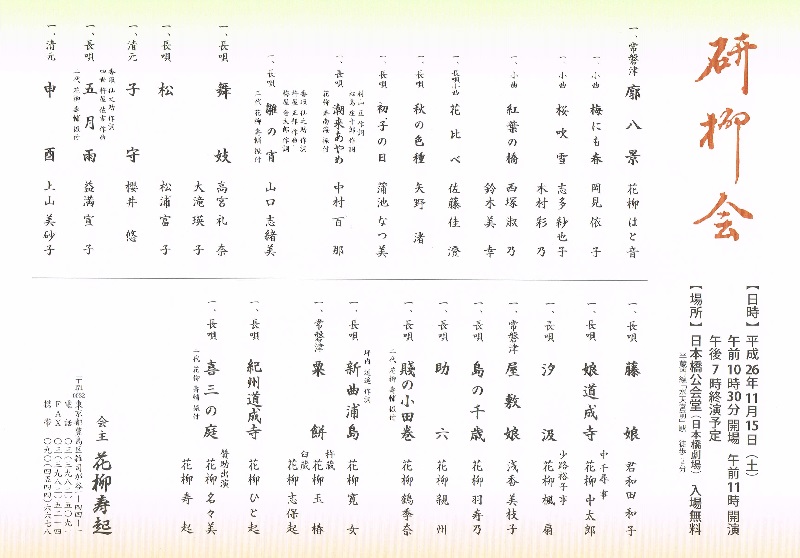 研柳会
【日時】平成26年11月15日(土)
午前10時30分開場 午前11時開演
午後7時終演予定
【場所】日本橋公会堂(日本橋劇場) 入場無料
一、常磐津 廓八景 花柳はと音
一、小曲 梅にも春 岡見依子
一、小曲 桜吹雪 志多紗也子
木村彩乃
一、小曲 紅葉の橋 西塚淑乃
鈴木美幸
一、長唄小曲 花比べ 佐藤佳澄
一、長唄 秋の色種 矢野渚
一、長唄 初子の日 蒲池なつ美
一、長唄 潮来あやめ 中村百那
一、長唄 雛の宵 山口志緒美
二代 花柳寿輔 振付
一、長唄 舞妓 高宮礼奈
大滝瑛子
一、長唄 松 松浦富子
一、清元 子守 櫻井悠
一、長唄 五月雨 益満宣子
一、清元 申酉 上山美砂子
一、長唄 藤娘 君和田和子
一、長唄 娘道成寺 花柳中太郎
一、長唄 汐汲 花柳楓扇
一、常磐津 屋敷娘 浅香美枝子
一、長唄 島の千歳 花柳羽寿乃
一、長唄 助六 花柳親州
一、長唄 賤の小田巻 花柳鶴季奈
二代 花柳寿輔 振付
坪内逍遥 作詞
一、長唄 新曲浦島 花柳寛女
一、常磐津 粟餅 杵腹 花柳玉椿
臼腹 花柳志保起
一、長唄 紀州道成寺 花柳ひと起
一、長唄 喜三の庭 賛助出演 花柳名々美
花柳寿起
二代 花柳寿輔 振付
会主 花柳寿起